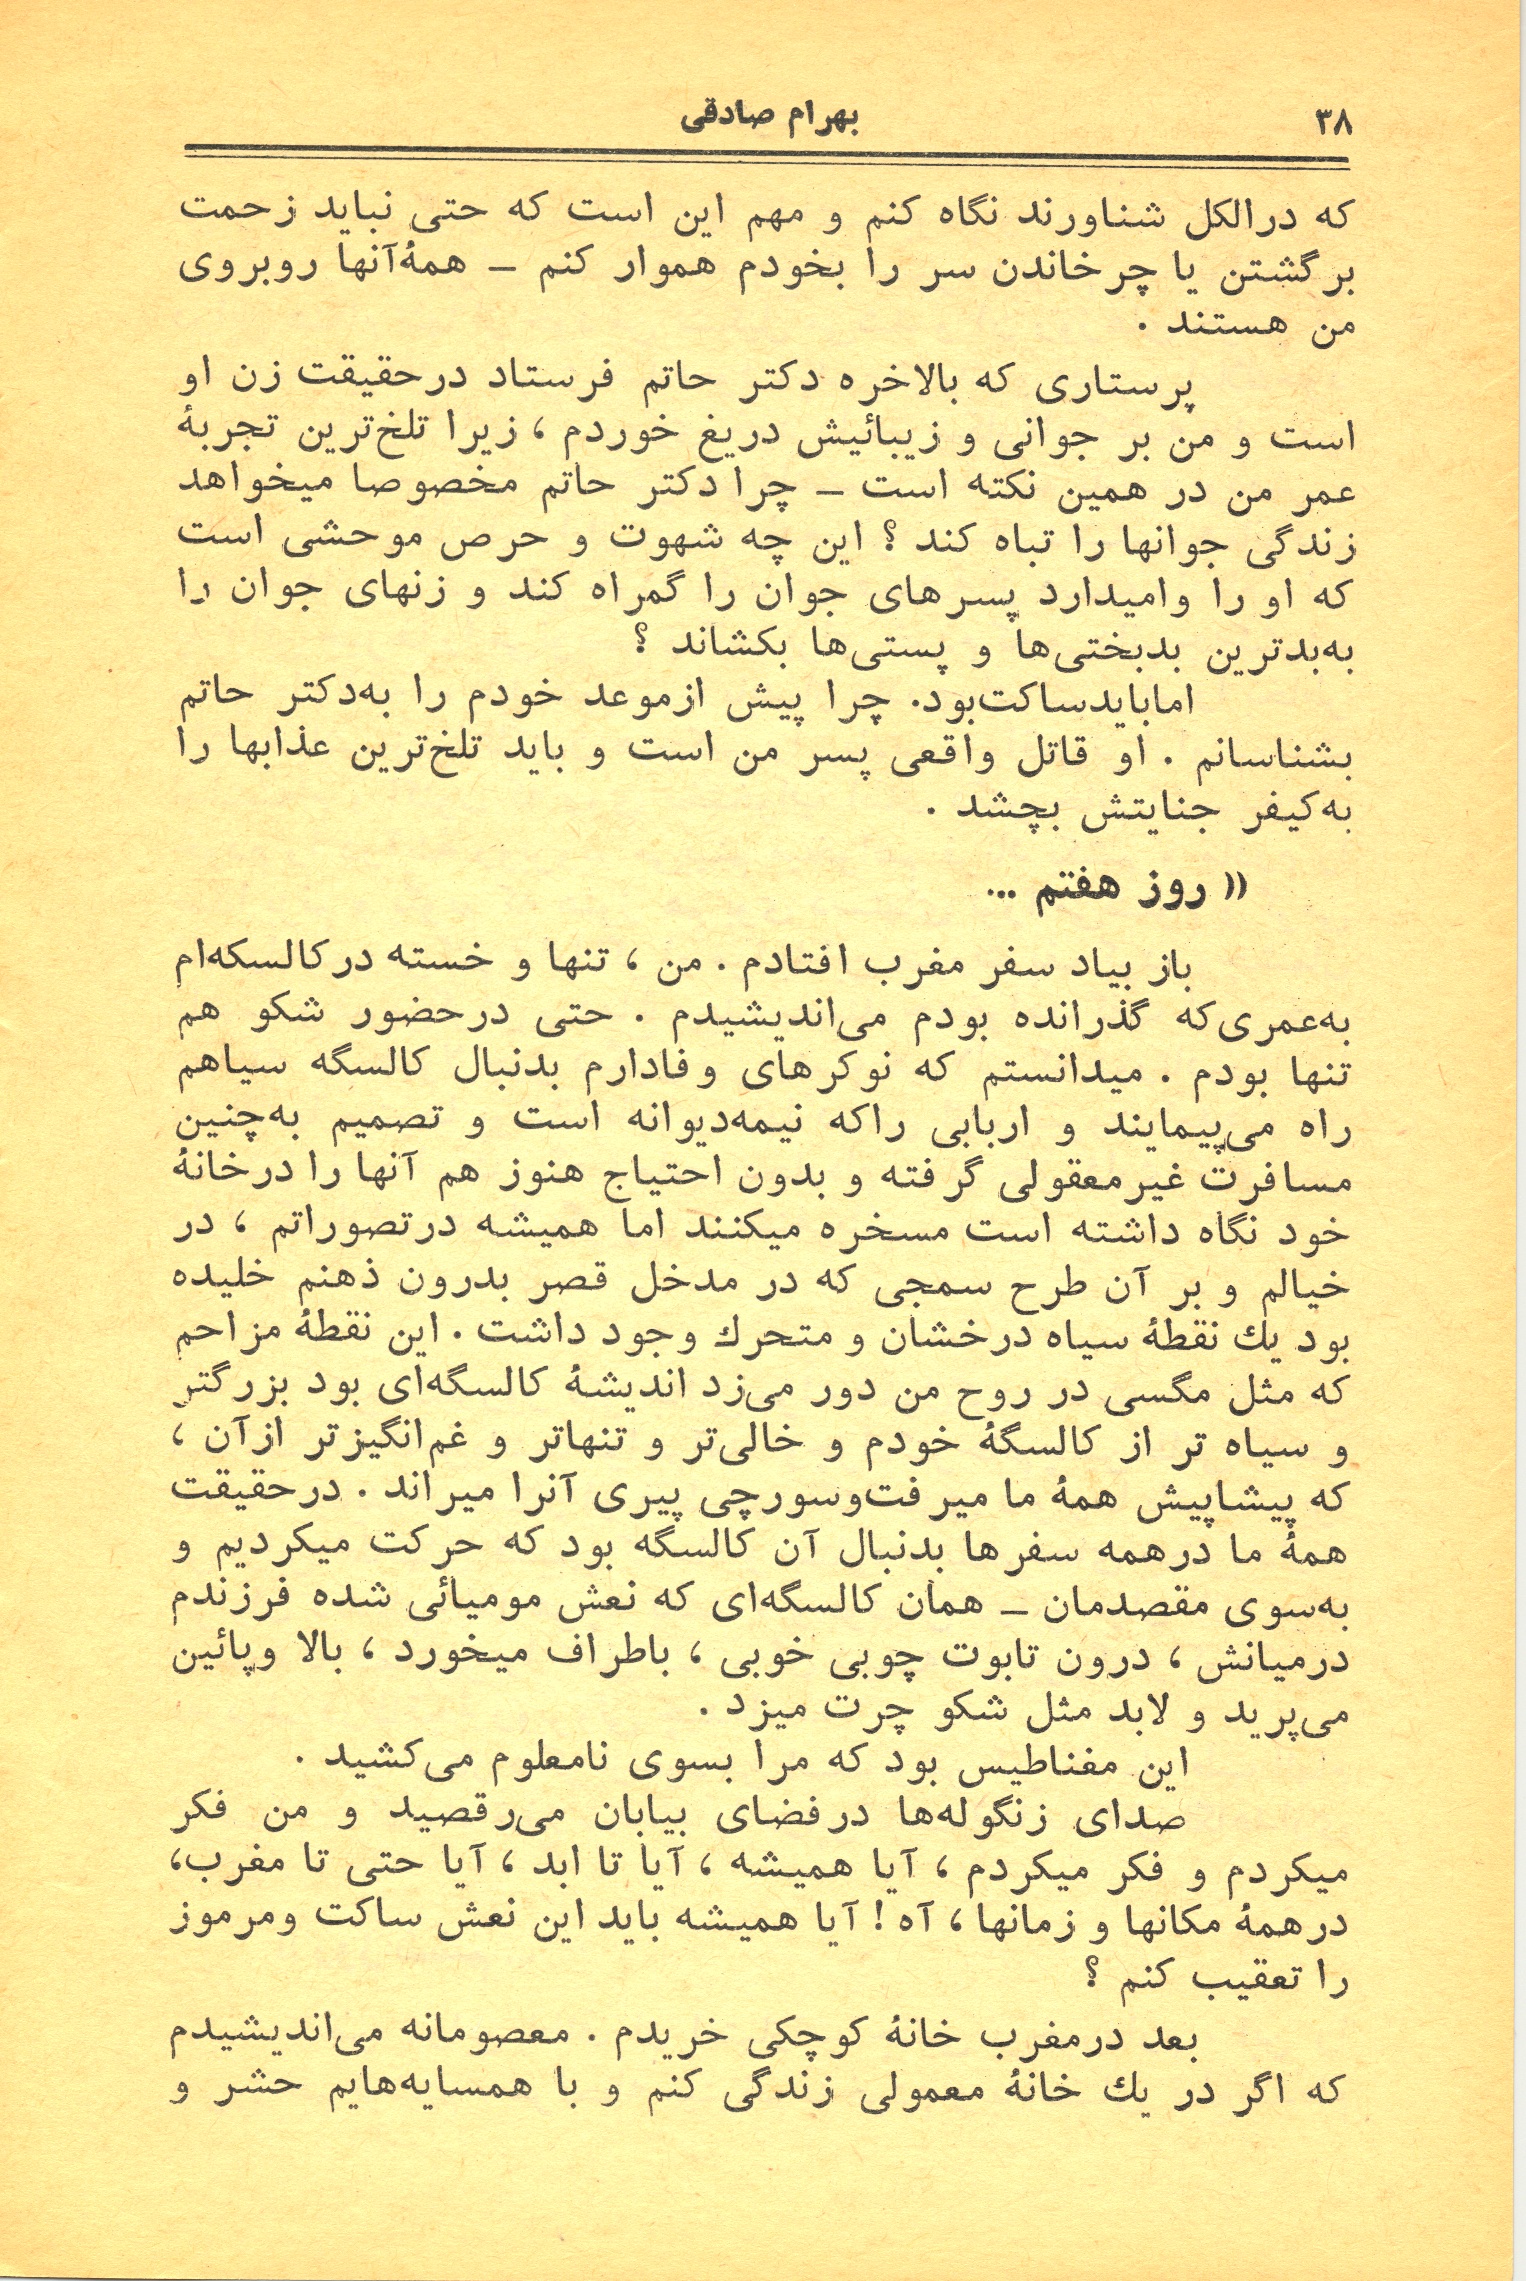 ۳۸
بهرام صادقی
که درالکل شناورند نگاه کنم و مهم این است که حتی نباید زحمت
برگشتن یا چرخاندن سر را بخودم هموار کنم ــ همهٔ‌آنها روبروی
من هستند .
پرستاری که بالاخره دکتر حاتم فرستاد درحقیقت زن او
است و من بر جوانی و زیبائیش دریغ خوردم ، زیرا تلخ‌ترین تجربهٔ
عمر من در همین نکته است ــ چرا دکتر حاتم مخصوصا میخواهد
زندگی جوانها را تباه کند ؟ این چه شهوت و حرص موحشی است
که او را وامیدارد پسرهای جوان را گمراه کند و زنهای جوان را
به‌بدترین بدبختی‌ها و پستی‌ها بکشاند ؟
امابایدساکت‌بود. چرا پیش ازموعد خودم را به‌دکتر حاتم
بشناسانم . او قاتل واقعی پسر من است و باید تلخ‌ترین عذابها را
به‌کیفر جنایتش بچشد .
« روز هفتم ...
باز بیاد سفر مغرب افتادم . من ، تنها و خسته درکالسکه‌ام
به‌عمری‌که گذرانده بودم می‌اندیشیدم . حتی درحضور شکو هم
تنها بودم . میدانستم که نوکرهای وفادارم بدنبال کالسگه سیاهم
راه می‌پیمایند و اربابی راکه نیمه‌دیوانه است و تصمیم به‌چنین
مسافرت غیرمعقولی گرفته و بدون احتیاج هنوز هم آنها را درخانهٔ
خود نگاه داشته است مسخره میکنند اما همیشه درتصوراتم ، در
خیالم و بر آن طرح سمجی که در مدخل قصر بدرون ذهنم خلیده
بود یك نقطهٔ سیاه درخشان و متحرك وجود داشت . این نقطهٔ مزاحم
که مثل مگسی در روح من دور می‌زد اندیشهٔ کالسگه‌ای بود بزرگتر
و سیاه تر از کالسگهٔ خودم و خالی‌تر و تنهاتر و غم‌انگیزتر ازآن ،
که پیشاپیش همهٔ ما میرفت‌وسورچی پیری آنرا میراند . درحقیقت
همهٔ ما درهمه سفرها بدنبال آن کالسگه بود که حرکت میکردیم و
به‌سوی مقصدمان ــ همان کالسگه‌ای که نعش مومیائی شده فرزندم
درمیانش ، درون تابوت چوبی خوبی ، باطراف میخورد ، بالا وپائین
می‌پرید و لابد مثل شکو چرت میزد .
این مغناطیس بود که مرا بسوی نامعلوم می‌کشید .
صدای زنگوله‌ها درفضای بیابان می‌رقصید و من فکر
میکردم و فکر میکردم ، آیا همیشه ، آیا تا ابد ، آیا حتی تا مغرب،
درهمهٔ مکانها و زمانها ، آه ! آیا همیشه باید این نعش ساکت ومرموز
را تعقیب کنم ؟
بعد درمغرب خانهٔ کوچکی خریدم . معصومانه می‌اندیشیدم
که اگر در یك خانهٔ معمولی زندگی کنم و با همسایه‌هایم حشر و